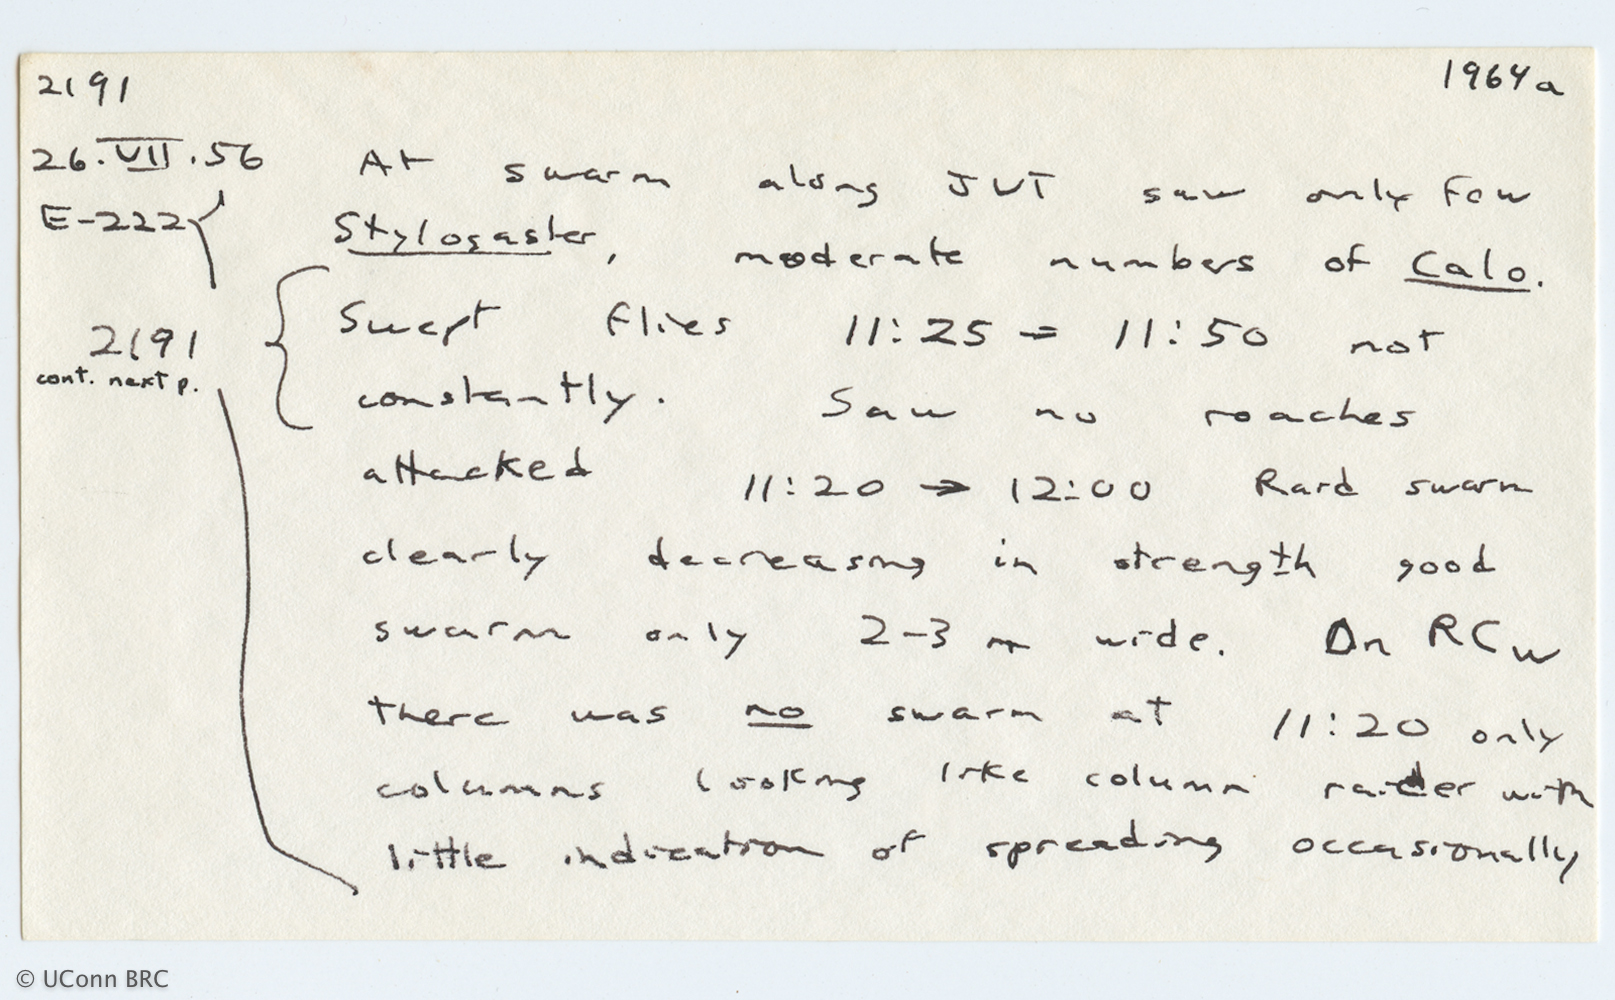 2191
1964a
26.VII.56
At swarm along JVT saw only few
E-222
Stylogaster, moderate numbers of Calo.
2191
Swept flies 11:25 → 11:50 not
cont. next p.
constantly. Saw no roaches
attacked 11:20 → 12:00 Raid swarm
clearly decreasing in strength good
swarm only 2-3 m wide. On RCW
there was no swarm at 11:20 only
columns looking like column raider with
little indication of spreading occasionally
© UConn BRC